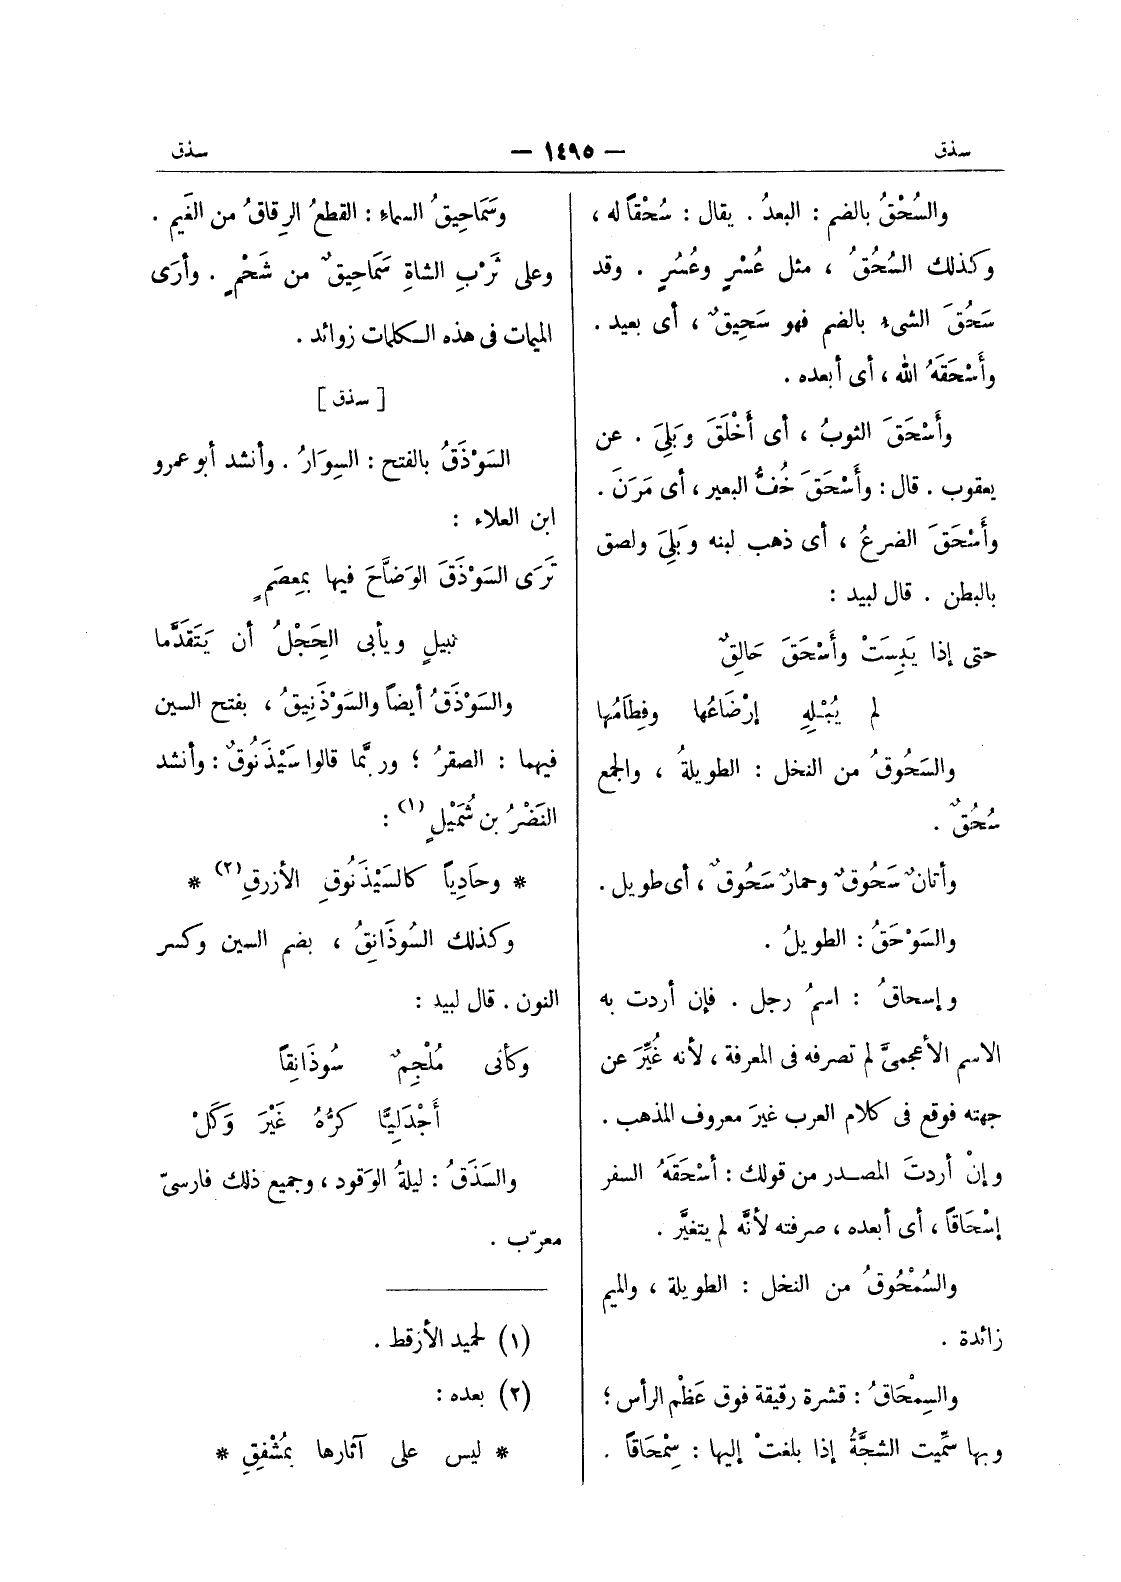 سذق — ١٤٩٥ — سذق
والسُحْقُ بالضم : البعدُ . يقال : سُحْقاً له ،
وكذلك السُحُقُ ، مثل عُسْرٍ وعُسُرٍ . وقد
سَحُقَ الشىء بالضم فهو سَحِيقٌ ، أى بعيد .
وأَسْحَقَهُ الله ، أى أبعده .
وأَسْحَقَ الثوبُ ، أى أَخْلَقَ وَبَلِىَ . عن
يعقوب . قال : وأَسْحَقَ خُفُّ البعير ، أى مَرَنَ .
وأَسْحَقَ الضرعُ ، أى ذهب لبنه وَبَلِىَ ولصق
بالبطن . قال لبيد :
حتى إذا يَبِسَتْ وأَسْحَقَ حَالِقٌ
لم يُبْلِهِ إرْضَاعُها وفِطَامُها
والسَحُوقُ من النخل : الطويلةُ ، والجمع
سُحُقٌ .
وأتانٌ سَحُوقٌ وحمارٌ سَحُوقٌ ، أى طويل .
والسَوْحَقُ : الطويلُ .
وإسحاقُ : اسمُ رجل . فإن أردت به
الاسم الأعجمىَّ لم تصرفه فى المعرفة ، لأنه غُيِّرَ عن
جهته فوقع فى كلام العرب غيرَ معروف المذهب .
وإنْ أردتَ المصدر من قولك : أسْحَقَهُ السفر
إسْحَاقاً ، أى أبعده ، صرفته لأنَّه لم يتغيَّر .
والسُمْحُوقُ من النخل : الطويلة ، والميم
زائدة .
والسِمْحَاقُ : قشرة رقيقة فوق عَظْم الرأس ؛
وبها سمِّيت الشجَّةُ إذا بلغتْ إليها : سِمْحَاقاً .
وسَمَاحِيقُ السماء : القطعُ الرقاقُ من الغَيم .
وعلى ثَرْبِ الشاةِ سَمَاحِيقٌ من شَحْمٍ . وأرَى
الميمات فى هذه الكلمات زوائد .
[ سذق ]
السَوْذَقُ بالفتح : السِوَارُ . وأنشد أبو عمرو
ابن العلاء :
تَرَى السَوْذَقَ الوَضَّاحَ فيها بمِعصَمٍ
نبيلٍ ويأبى الحِجْلُ أن يَتَقَدَّما
والسَوْذَقُ أيضاً والسَوْذَنِيقُ ، بفتح السين
فيهما : الصقرُ ؛ وربَّما قالوا سَيْذَنُوقٌ : وأنشد
النَضْرُ بن شُمَيْلٍ (١) :
* وحَادِياً كالسَيْذَنُوقِ الأزرقِ (٢) *
وكذلك السُوذَانِقُ ، بضم السين وكسر
النون . قال لبيد :
وكأنى مُلْجِمٌ سُوذَانِقاً
أَجْدَلِيًّا كَرُّهُ غَيْرَ وَكَلْ
والسَذَقُ : ليلةُ الوَقود ، وجميع ذلك فارسىّ
معرّب .
(١) لحميد الأزقط .
(٢) بعده :
* ليس على آثارها بمُشْفِقِ *